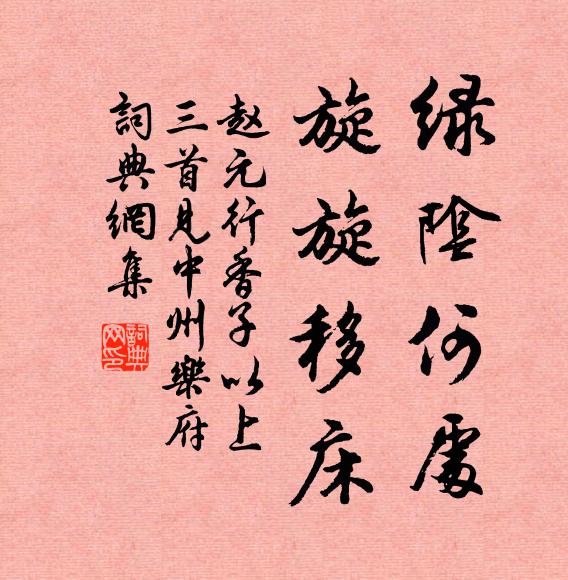 绿陰何處
旋旋移床
赵元行香子以上
三首見中州樂府
詞典網集
詞典网印